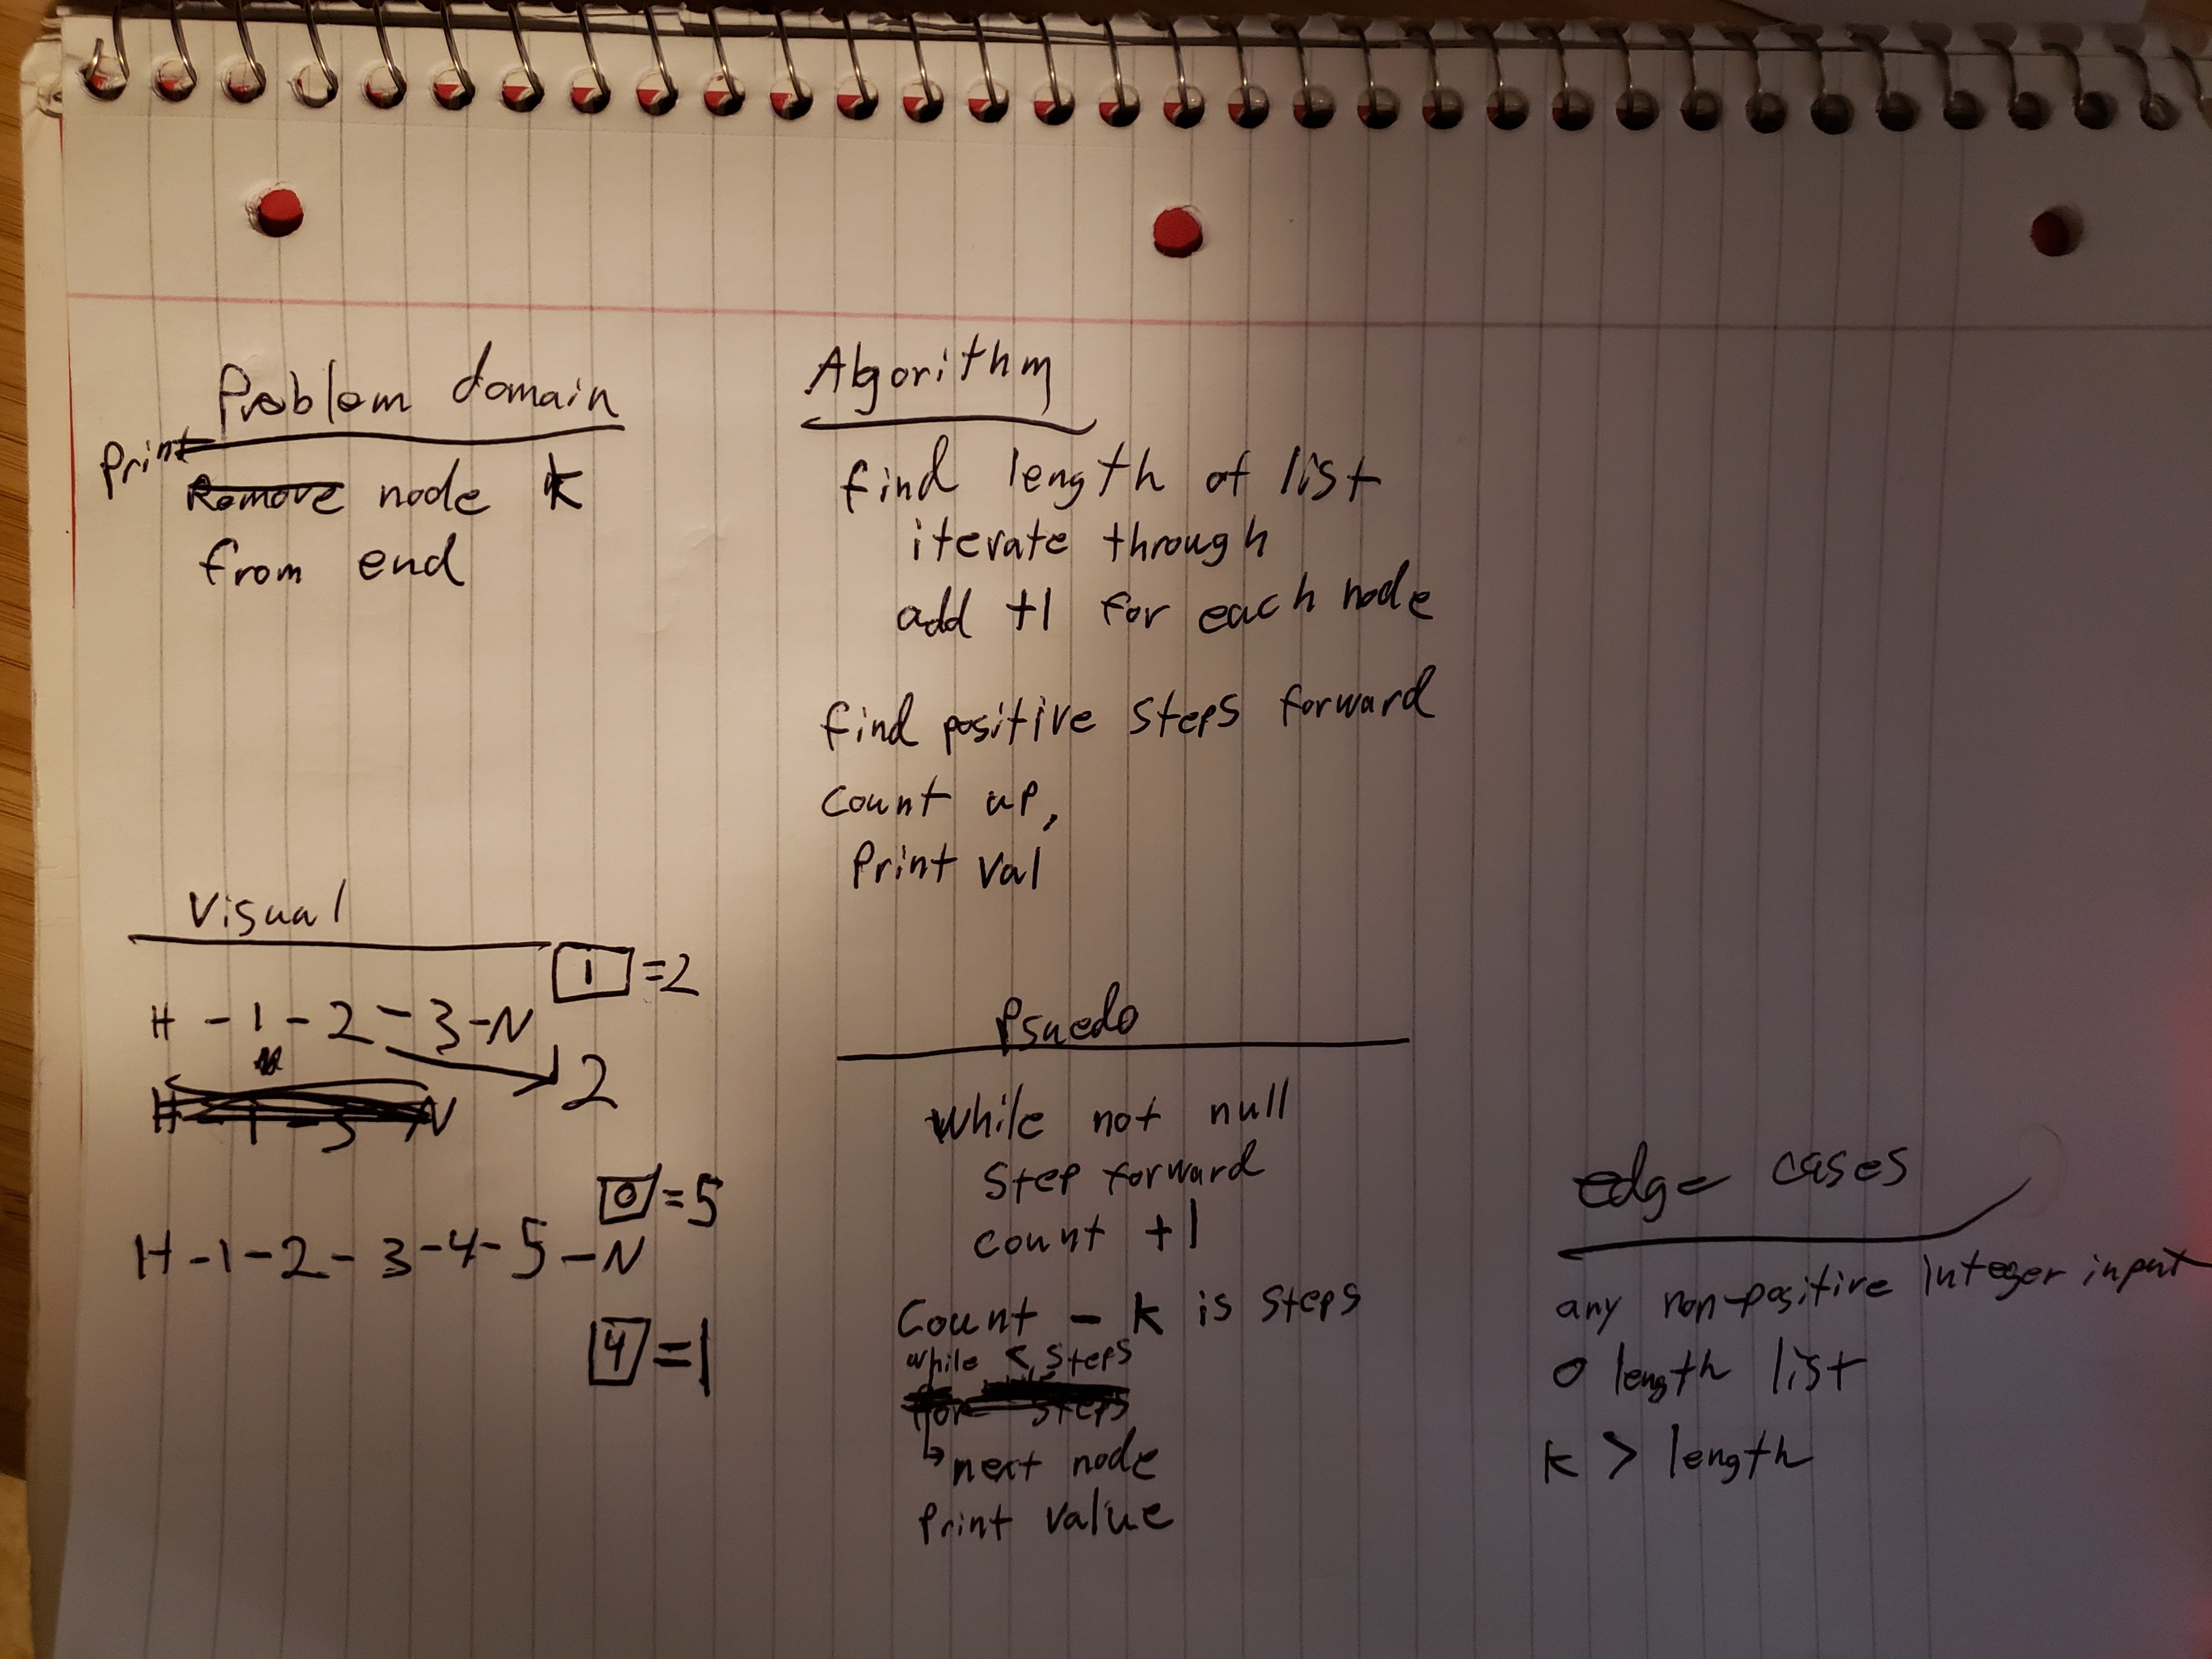 Problem domain
Print
Remove node k
from end
Visual
1 =2
H - 1 - 2 - 3 - N
2
H - 1 - 3 N
0 = 5
H - 1 - 2 - 3 - 4 - 5 - N
4 = 1
Algorithm
find length of list
iterate through
add +1 for each node
find positive steps forward
count up,
Print val
Psuedo
while not null
Step forward
count +1
Count - k is steps
while < steps
for steps
↳ next node
Print value
edge cases
any non-positive integer input
0 length list
k > length